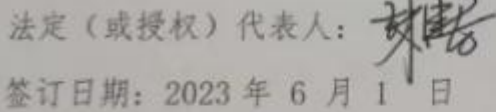 法定（或授权）代表人：
签订日期：2023 年 6 月 1 日